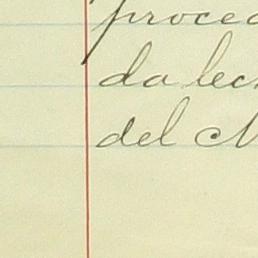 proced
da lec
del M